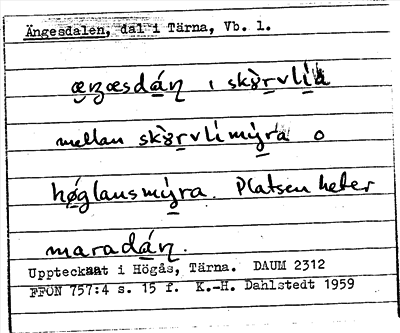 Ängesdalen, dal i Tärna, Vb. l.
æŋæsdáɳ i skỳrvlia
mellan skỳrvlimýra o
høglausmýra. Platsen heter
maradáɳ.
Upptecknat i Högås, Tärna. DAUM 2312
FFÖN 757:4 s. 15 f. K.-H. Dahlstedt 1959